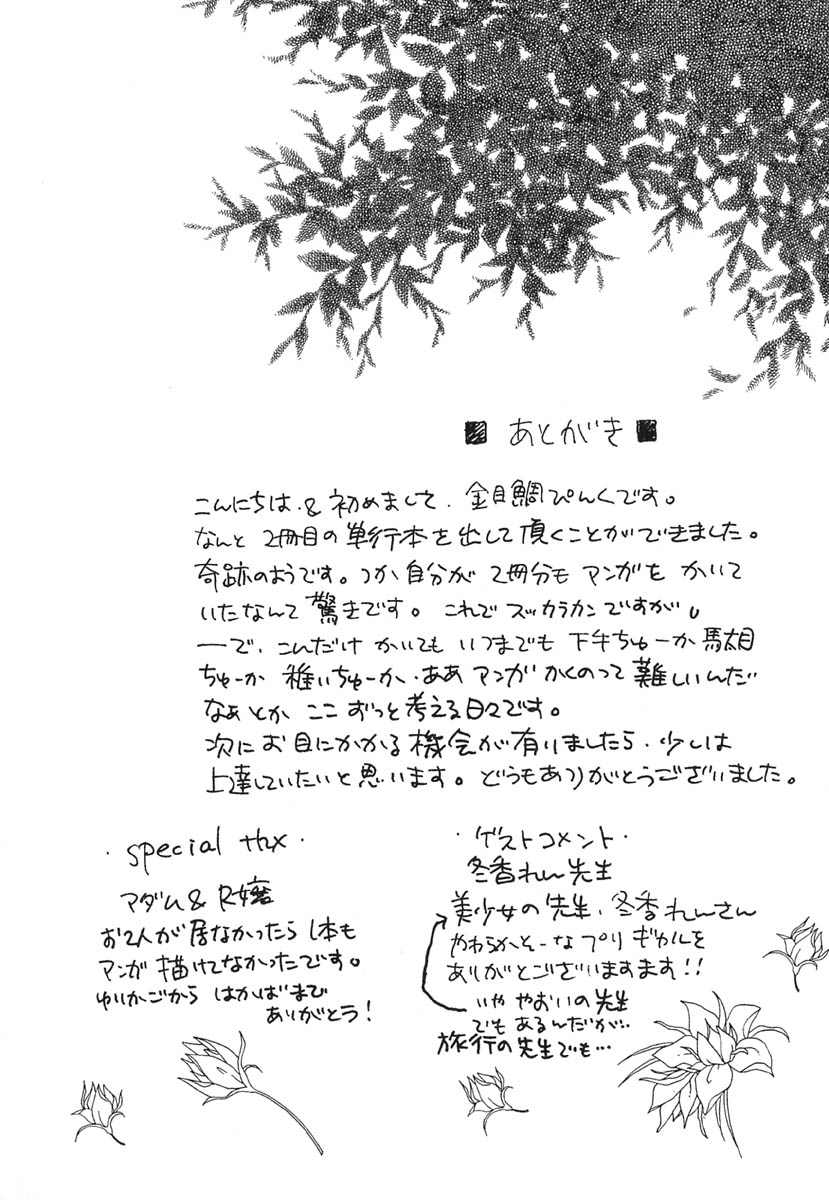 ■ あとがき ■
こんにちは.&初めまして.金目鯛ぴんくです。
なんと 2冊目の単行本を出して頂くことができました。
奇跡のようです。つか自分が 2冊分も マンガを かいて
いたなんて 驚きです。これで スッカラカンですが。
一で、こんだけ かいても いつまでも 下手ちゅーか 馬太目
ちゅーか 稚いちゅーか.ああ マンガ かくのって 難しいんだ
なぁとか ここ ずっと考える日々です。
次に お目にかかる機会が有りましたら.少しは
上達していたいと思います。どうもありがとうございました。
・special thx・
マダム&R嬢
お2人が居なかったら 1本も
マンガ 描けてなかったです。
ゆりかごから はかばまで
ありがとう!
・ゲストコメント・
冬香れん先生
美少女の先生、冬香れんさん
やわらかそーなプリギャルを
ありがとございますます!!
いや やおいの先生
でも あるんだが‥
旅行の先生でも…